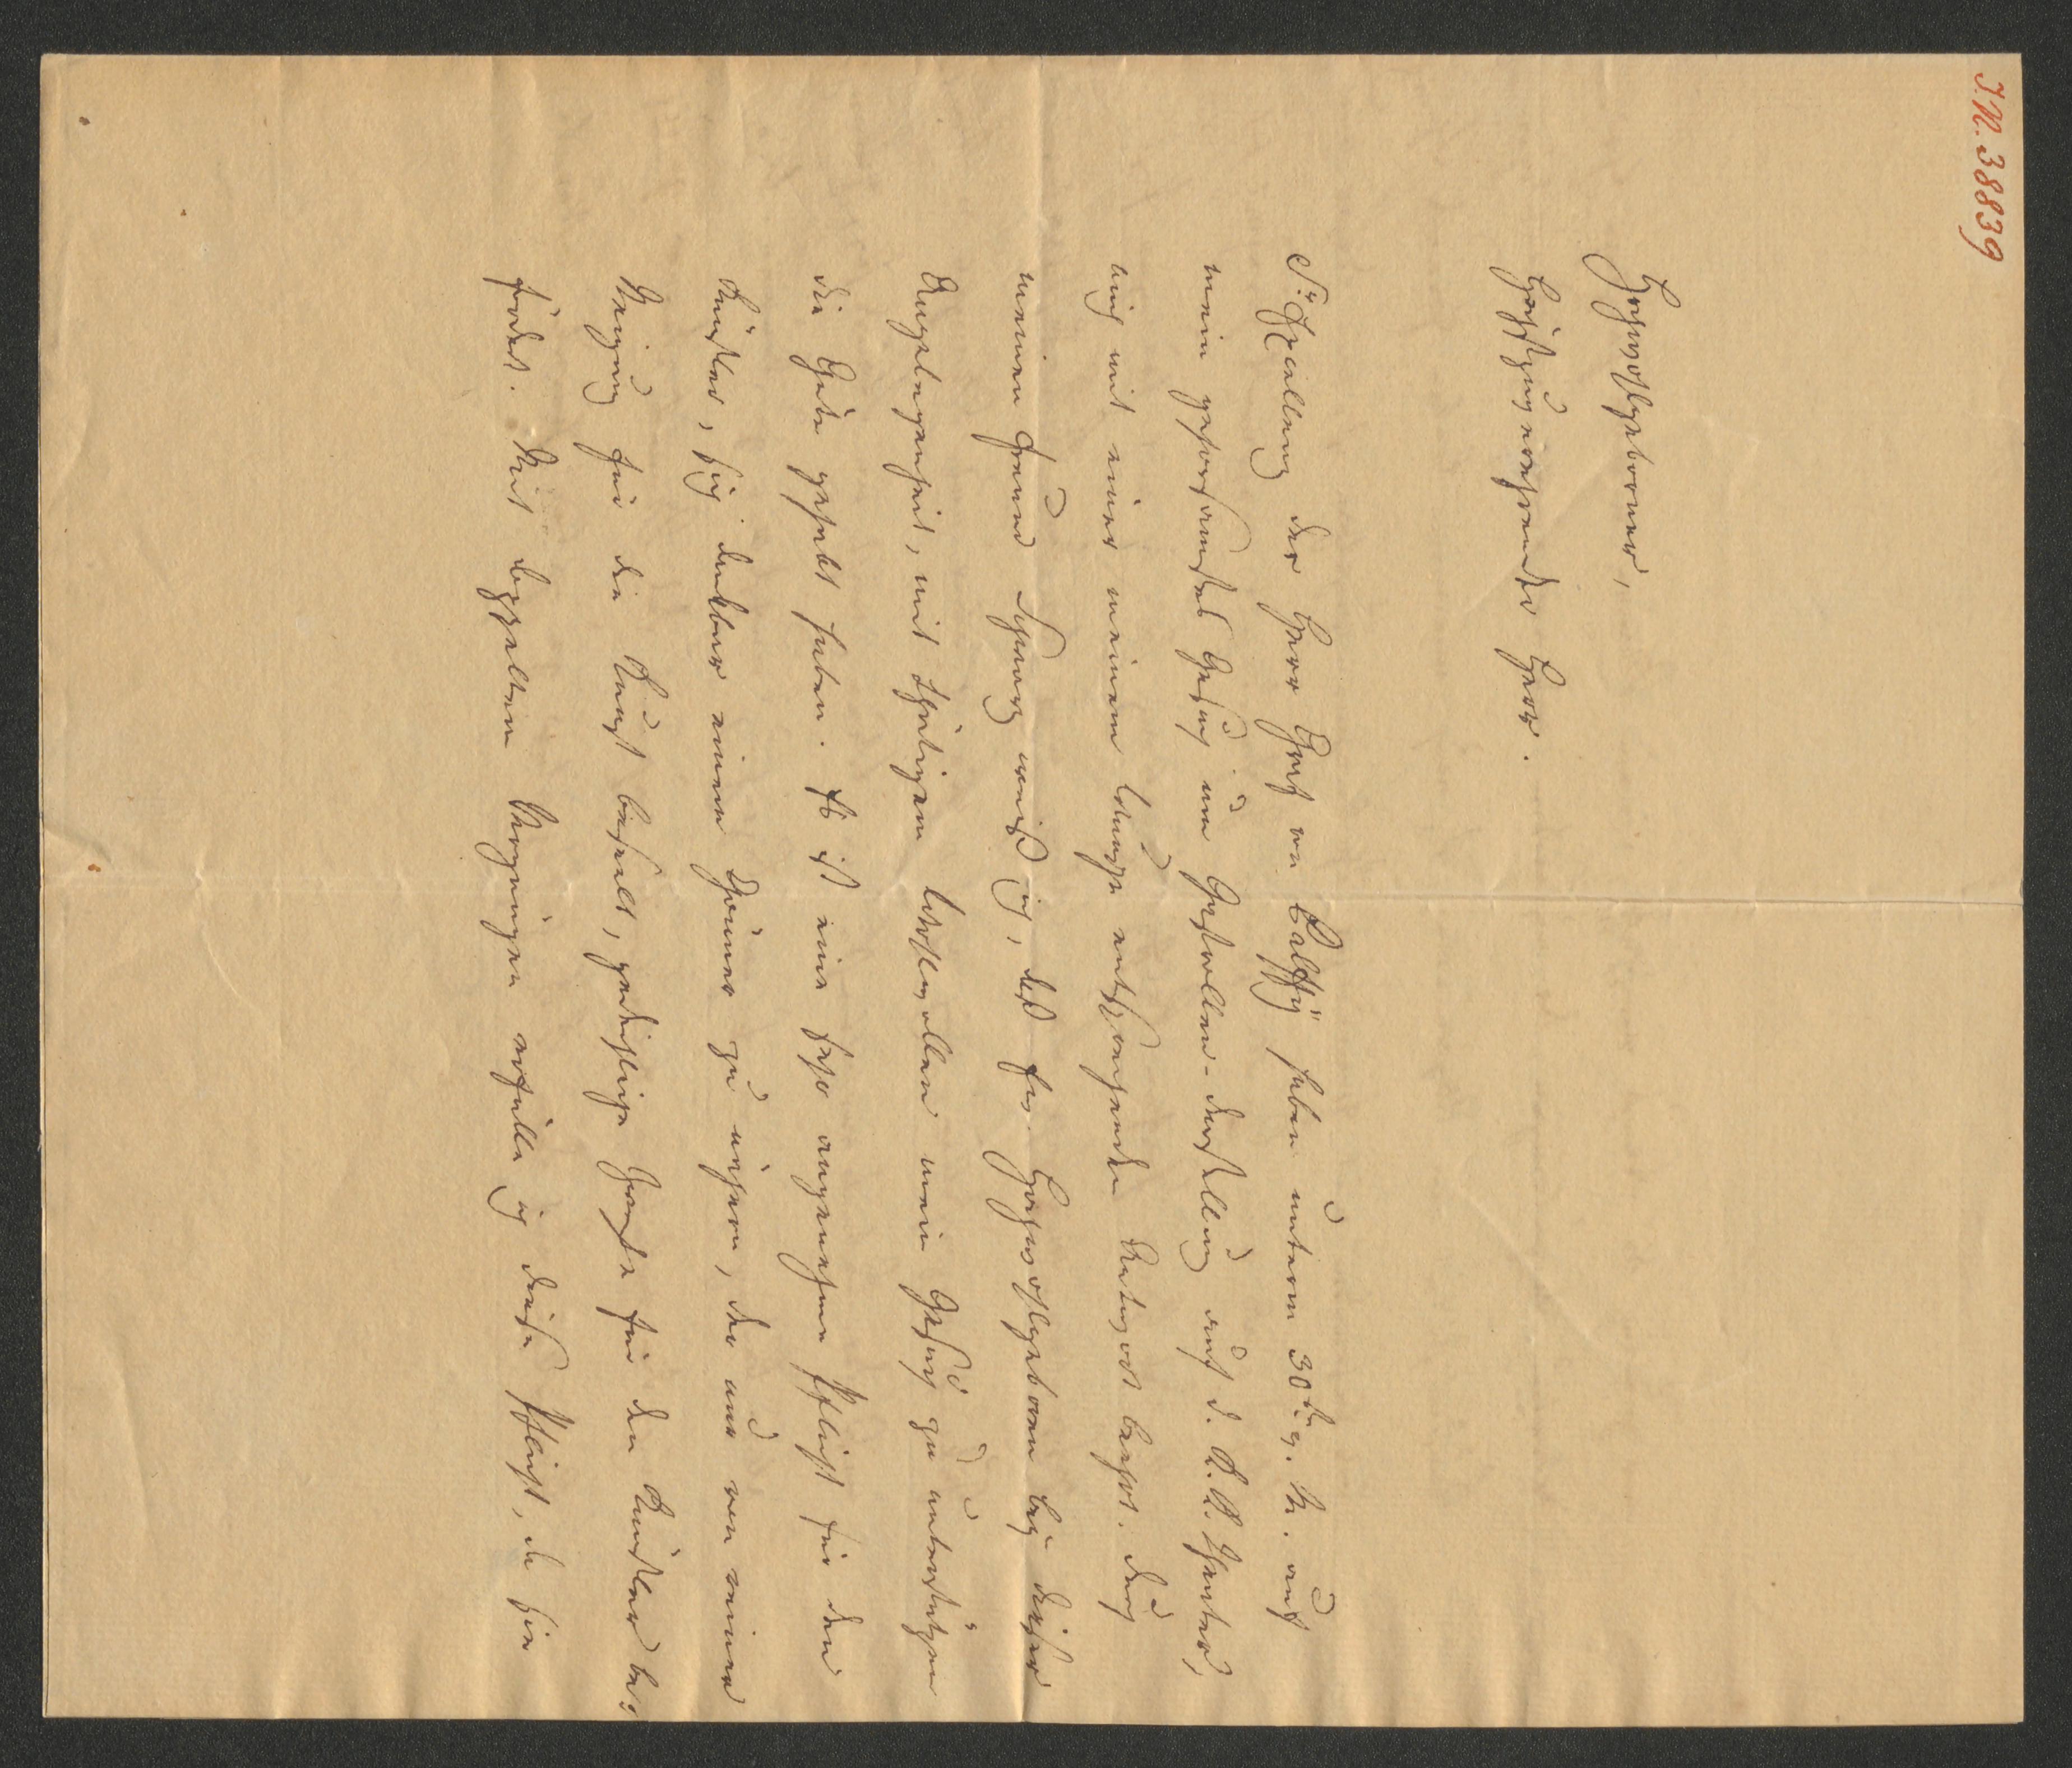 I.N. 38839
Hochwohlgeborner,
Hochzuverehrender Herr.
Se Excellenz der Herr Graf von Palffÿ haben unterm 30t. v. M. auf
mein gehorsamstes Gesuch um Gastrollen-Darstellung auf d. K. K. Theater,
mich mit einer meinem Wunsche entsprechenden Antwort beehrt. Durch
meinen Freund Schwarz weiß ich, daß Ew. Hochwohlgeboren bey dieser
Angelegenheit, mit thätigem Wohlwollen mein Gesuch zu unterstützen
die Güte gehabt haben. Es ist eine sehr angenehme Pflicht für den
Künstler, sich dankbar einem Gönner zu nähern, der nur von reiner
Neigung für die Kunst beseelt, günstige für den Künstler be:
fördert. Mit doppeltem Vergnügen erfülle ich diese Pflicht, da sie